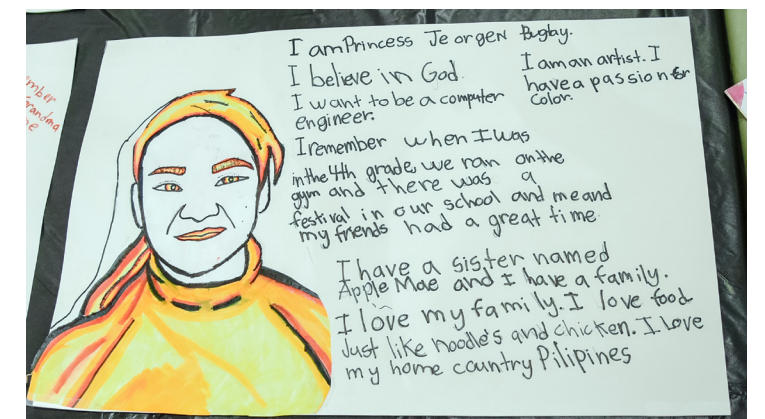 mber
randma
ne
I am Princess Jeorgen Bugbay.
I believe in God.
I want to be a computer
engineer.
I am an artist. I
have a passion for
color.
I remember when I was
in the 4th grade, we ran on the
gym and there was a
festival in our school and me and
my friends had a great time
I have a sister named
Apple Mae and I have a family.
I love my family. I love food
Just like noodle's and chicken. I Love
my home country Pilipines